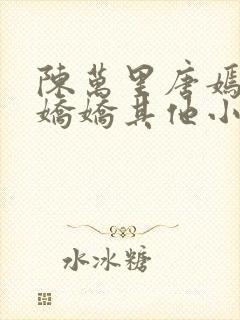 陳萬里唐嫣
嬌嬌其他小
水冰糖